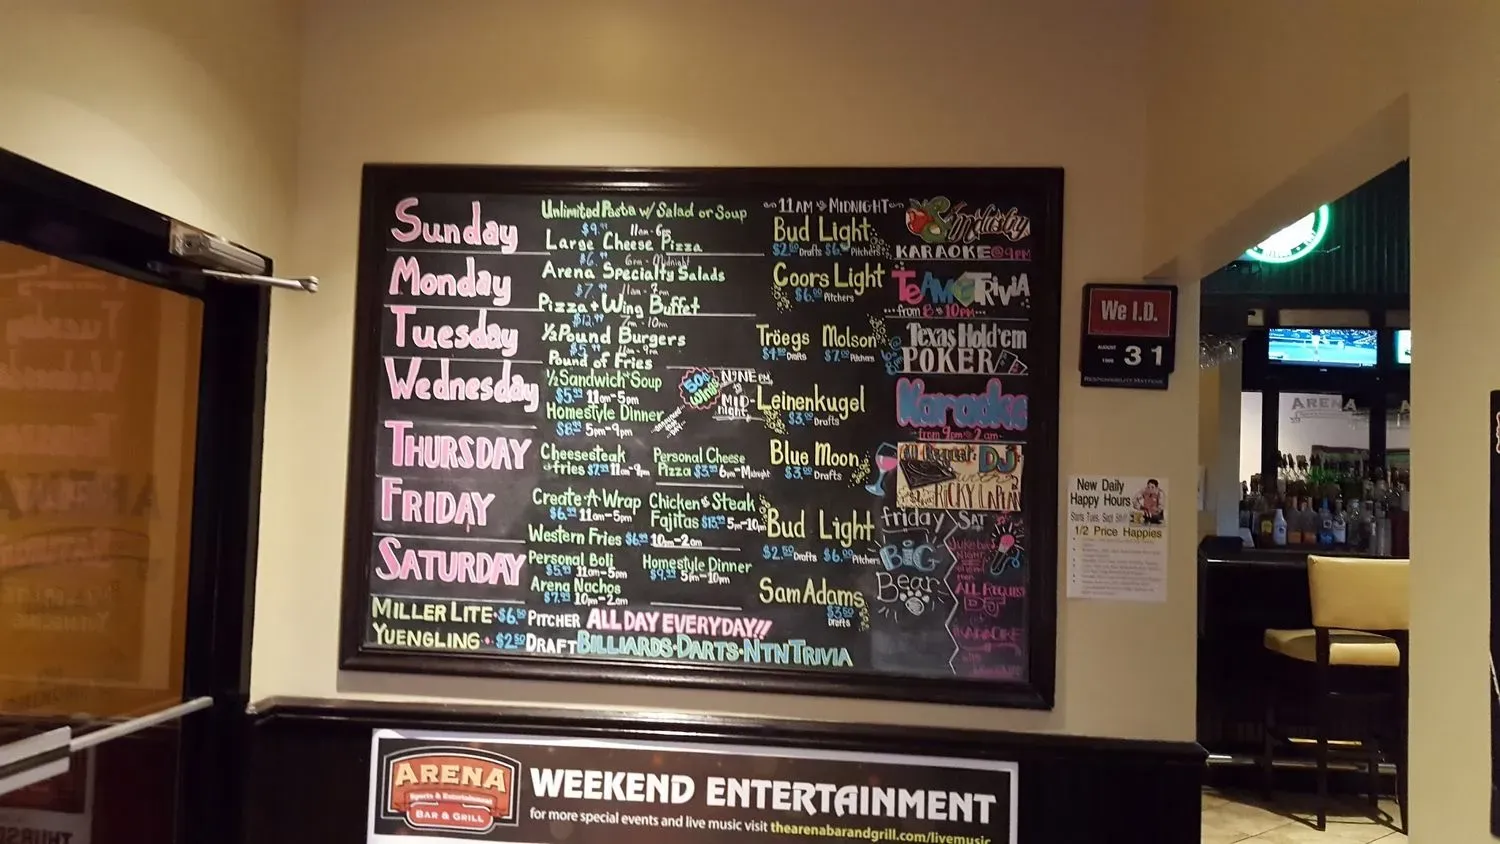 Sunday
Unlimited Pasta w/ Salad or Soup
$9.99 11am-6pm
Large Cheese Pizza
$6.99 6pm-Midnight
11AM Midnight
Bud Light
$2.50 Drafts $6.00 Pitchers
KARAOKE@9PM
Monday
Arena Specialty Salads
$7.99 11am-9pm
Pizza + Wing Buffet
Coors Light
$6.00 Pitchers
TEAM TRIVIA
from 8-10PM
Tuesday
$12.99 -10pm
1/2 Pound Burgers
Tröegs Molson
Drafts $7.00 Pitchers
Texas Hold'em
POKER
Wednesday
Pound of Fries
1/2 Sandwich Soup
$5.99 11am-5pm
Homestyle Dinner
$8.99 5pm-9pm
50¢ WINGS
NINE PM
to
MID-
night
Leinenkugel
$3.00 Drafts
Karaoke
from 9pm-2am
THURSDAY
Cheesesteak
+ fries $7.99 11am-9pm
Personal Cheese
Pizza $3.99 6pm-Midnight
Blue Moon
$3.00 Drafts
All Request DJ
with
RICKY LAPLAN
FRIDAY
Create-A-Wrap
$6.99 11am-5pm
Chicken & Steak
Fajitas 5pm-10pm
Western Fries $6.99 10pm-2am
Bud Light
$2.50 Drafts $6.00 Pitchers
friday SAT
BIG
Bear
Jukebox
NIGHT
then
ALL REQUEST
DJ
KARAOKE
SATURDAY
Personal Boli
$5.99 11am-5pm
Homestyle Dinner
$9.99 5pm-10pm
Arena Nachos
$7.99 10pm-2am
Sam Adams
$3.50
Drafts
MILLER LITE $6.50 PITCHER ALL DAY EVERYDAY!!
YUENGLING $2.50 DRAFT BILLIARDS·DARTS·NTN TRIVIA
We I.D.
AUGUST
1995
31
RESPONSIBILITY MATTERS
New Daily
Happy Hours
Starts Tues. Sept
1/2 Price Happies
ARENA
ARENA
Sports & Entertainment
BAR & GRILL
WEEKEND ENTERTAINMENT
for more special events and live music visit thearenabarandgrill.com/livemusic